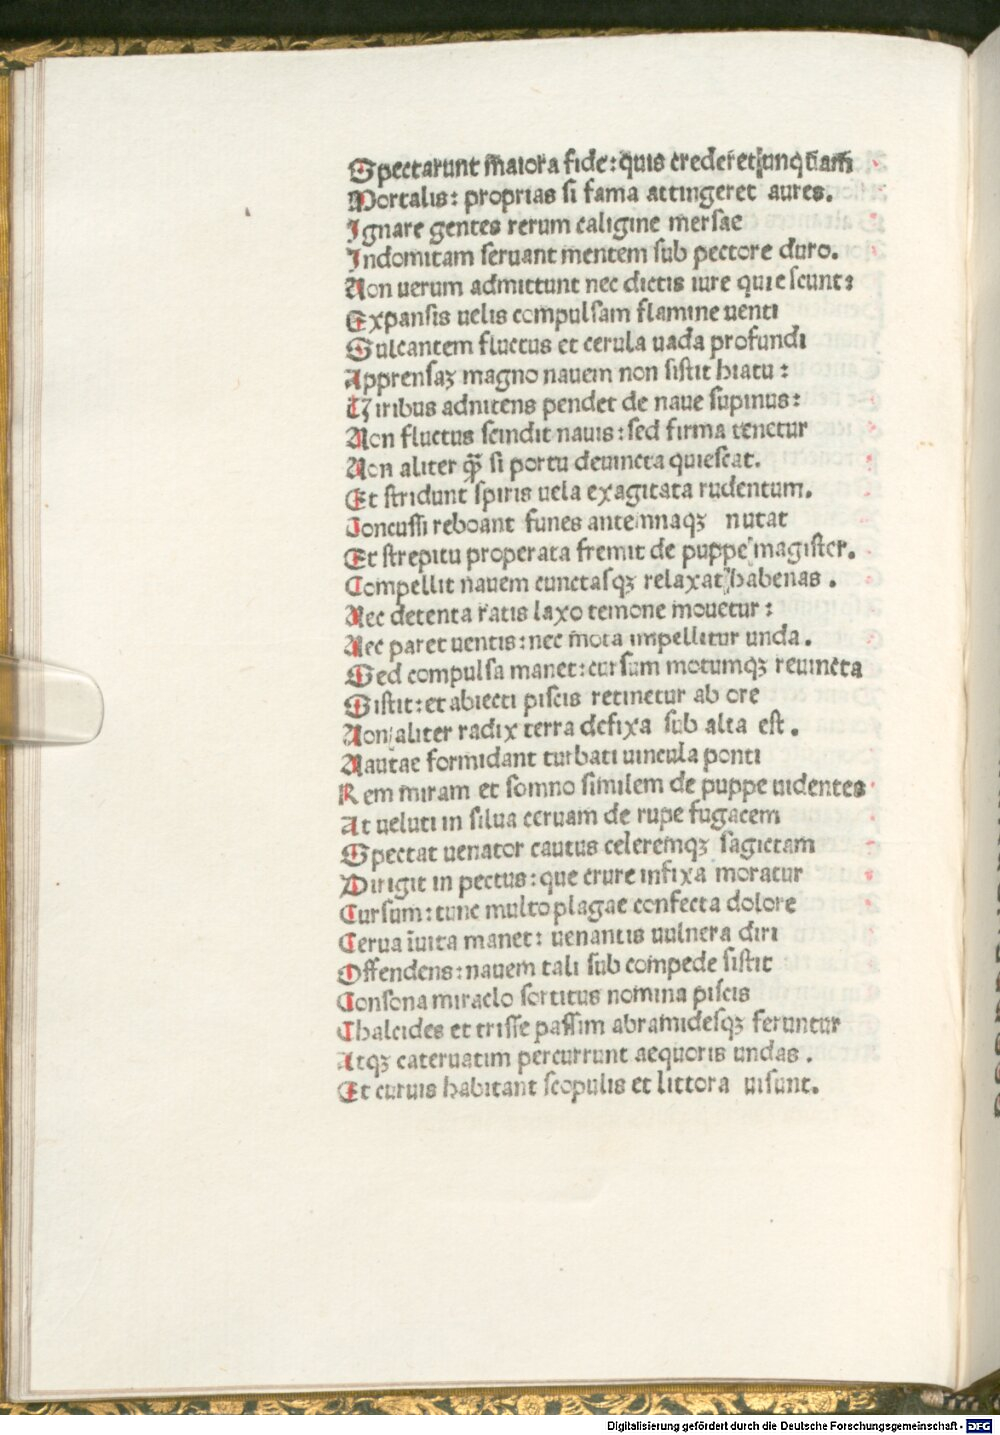 Spectarunt maiora fide: quis crederet unqūam
Mortalis: proprias si fama attingeret aures.
Ignare gentes rerum caligine mersae
Indomitam seruant mentem sub pectore duro.
Non uerum admittunt nec dictis iure quiescunt:
Expansis uelis compulsam flamine uenti
Sulcantem fluctus et cerula uada profundi
Apprensaꝫ magno nauem non sistit hiatu:
Viribus adnitens pendet de naue supinus:
Non fluctus scindit nauis: sed firma tenetur
Non aliter ꝙ̄ si portu deuincta quiescat.
Et stridunt spiris uela exagitata rudentum.
Concussi reboant funes antemnaqꝫ nutat
Et strepitu properata fremit de puppe magister.
Compellit nauem cunctasqꝫ relaxat habenas.
Nec detenta ratis laxo temone mouetur:
Nec paret uentis: nec mota impellitur unda.
Sed compulsa manet: cursum motumqꝫ reuincta
Sistit: et abiecti piscis retinetur ab ore
Non aliter radix terra defixa sub alta est.
Nautae formidant turbati uincula ponti
Rem miram et somno similem de puppe uidentes
At ueluti in silua ceruam de rupe fugacem
Spectat uenator cautus celeremqꝫ sagittam
Dirigit in pectus: que crure infixa moratur
Cursum: tunc multo plagae confecta dolore
Cerua īuita manet: uenantis uulnera diri
Offendens: nauem tali sub compede sistit
Consona miraclo sortitus nomina piscis
Chalcides et trisse passim abramidesqꝫ feruntur
Atqꝫ cateruatim percurrunt aequoris undas.
Et curuis habitant scopulis et littora uisunt.
Digitalisierung gefördert durch die Deutsche Forschungsgemeinschaft - DFG